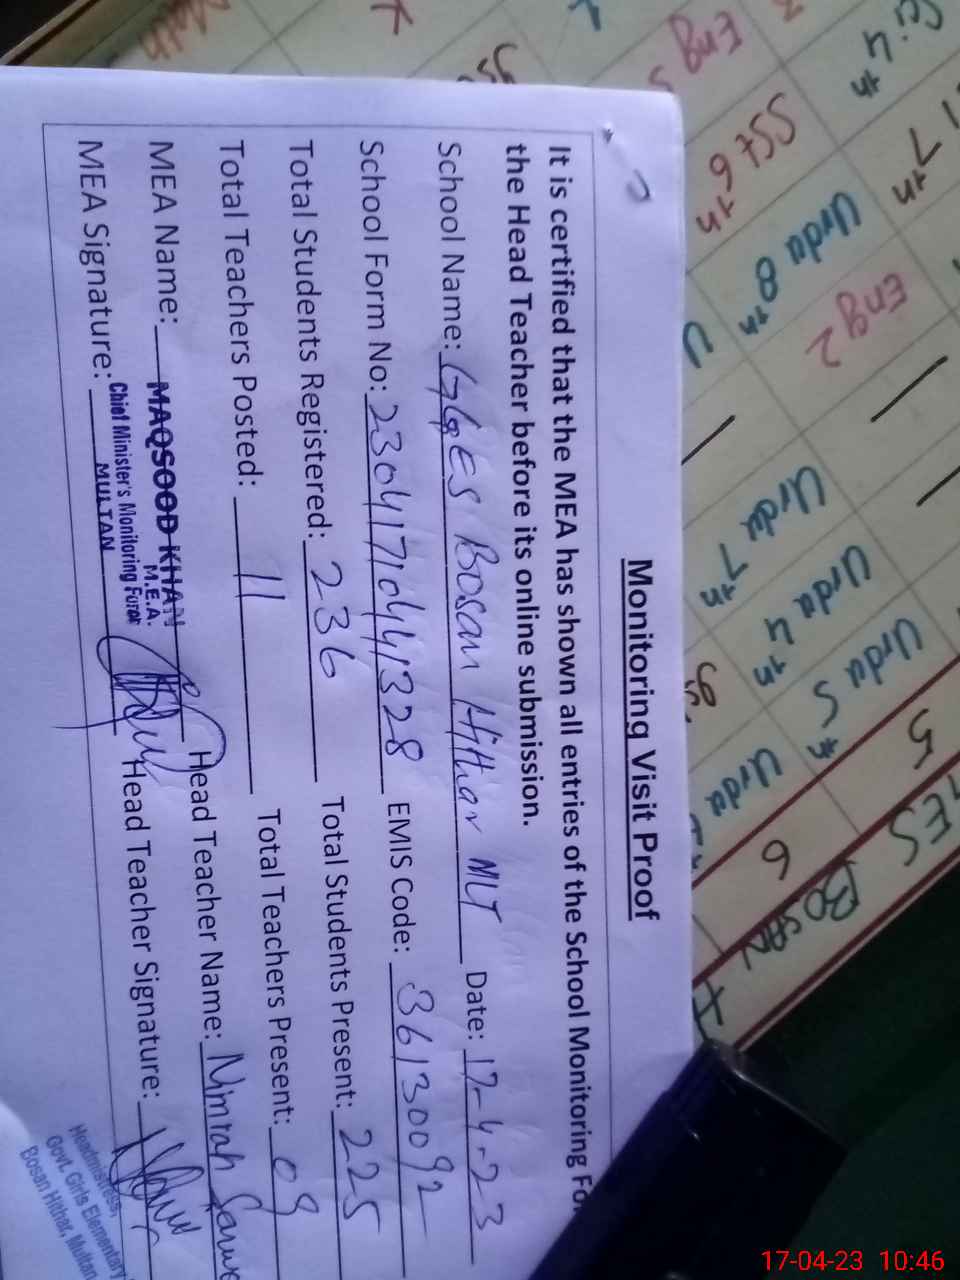 Monitoring Visit Proof
It is certified that the MEA has shown all entries of the School Monitoring Fo
the Head Teacher before its online submission.
School Name: GGES Bosan Hithar MLT Date: 17-4-23
School Form No: 2304171044328 EMIS Code: 36130092
Total Students Registered: 236 Total Students Present: 225
Total Teachers Posted: 11 Total Teachers Present: 09
MEA Name: MAQSOOD KHAN Head Teacher Name: Nimrah Sarwe
M.E.A.
Chief Minister's Monitoring Force
MEA Signature: MULTAN Head Teacher Signature:
Headmistress,
Govt. Girls Elementary
Bosan Hithar, Multan
Eng
SSt 6th
Urdu 8th
Eng 2
4th
7th
Urdu 7th
Urdu 4th
Urdu 5th
Urdu
5
6
GES BOSAN H
17-04-23 10:46